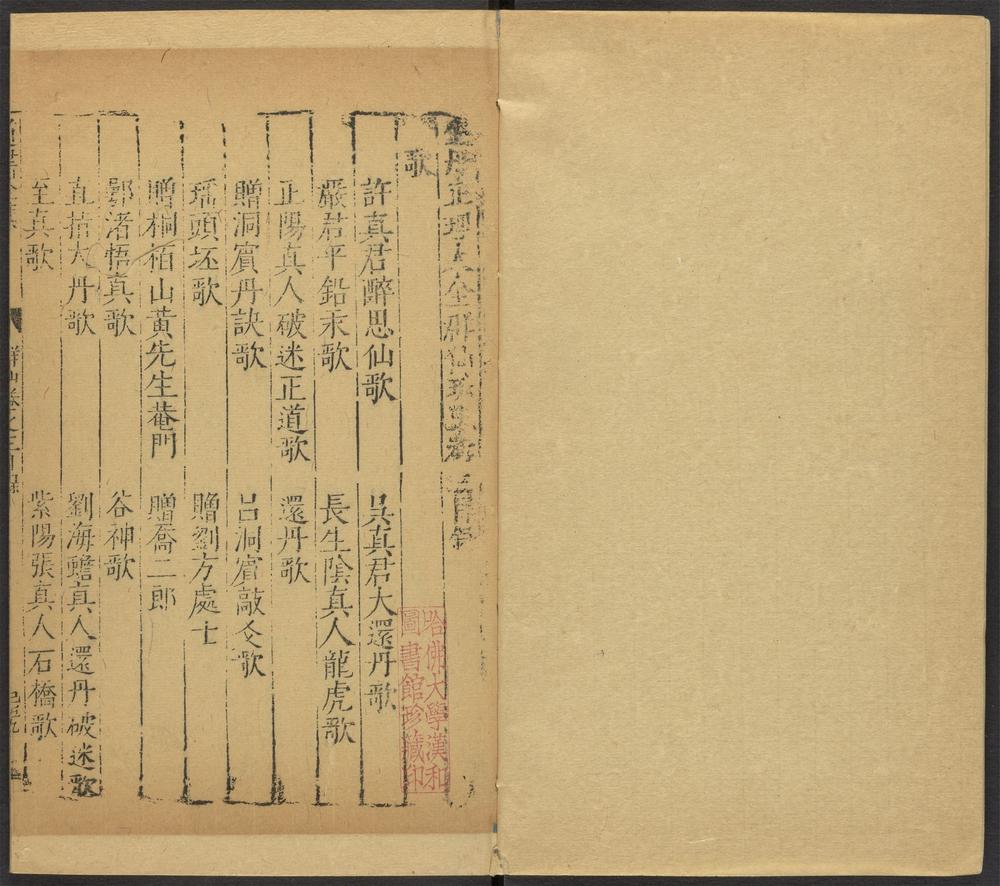 金丹正理大全群仙珠玉集 目錄
歌
許真君醉思仙歌 吳真君大還丹歌
嚴君平鉛汞歌 長生陰真人龍虎歌
正陽真人破迷正道歌 還丹歌
贈洞賔丹訣歌 吕洞賔敲爻歌
瑶頭坯歌 贈劉方處士
贈桐栢山黃先生菴門 贈喬二郎
鄂渚悟真歌 谷神歌
直指大丹歌 劉海蟾真人還丹破迷歌
至真歌 紫陽張真人石橋歌
哈佛大學漢和
圖書館珍藏印